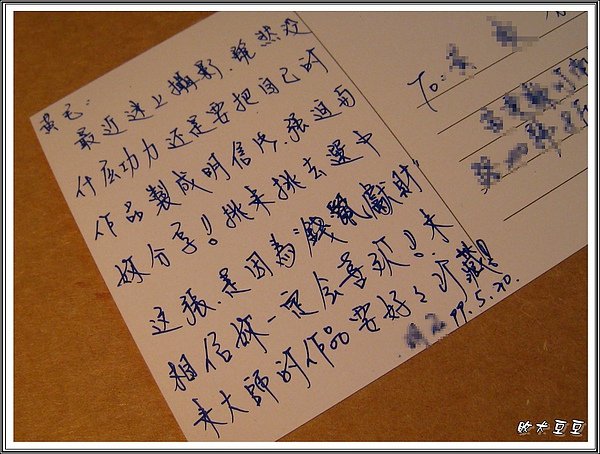 黃毛:
最近迷上攝影,雖然沒
什庅功力还是要把自己的
作品製成明信片,強迫与
妳分享!挑來挑去選中
这張,是因為"錢鼠獻財"
相信妳一定会喜欢!未
來大師的作品要好々收藏!
99.5.20.
To:
豆豆